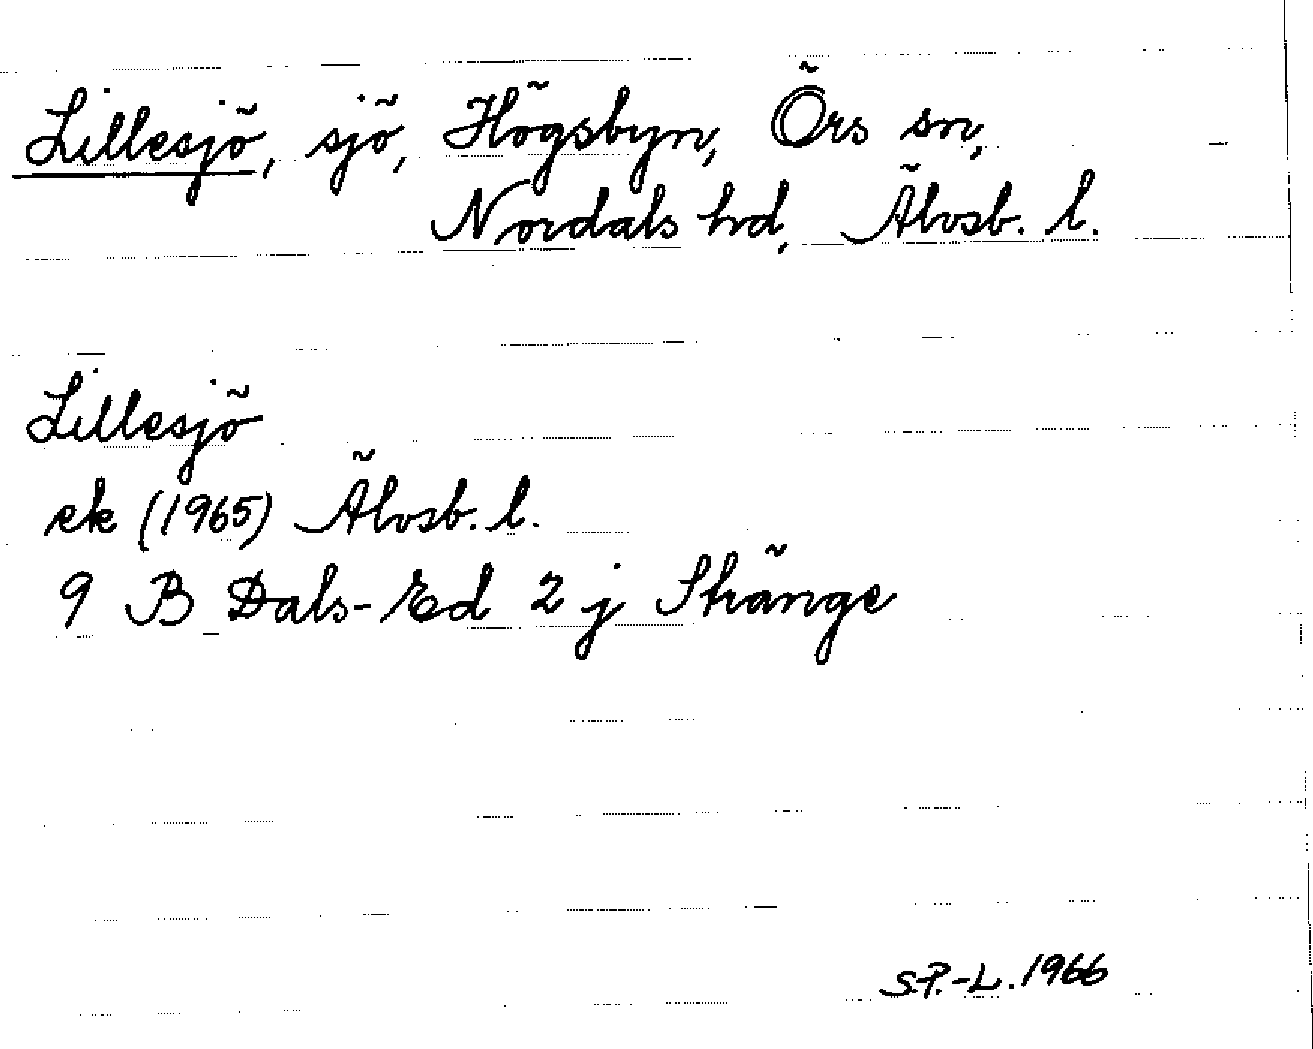 Lillesjö, sjö, Högsbyn, Örs sn,
Nordals hd, Älvsb. l.
Lillesjö
ek (1965) Älvsb. l.
9 B Dals-Ed 2 j Stränge
S.P.-L. 1966